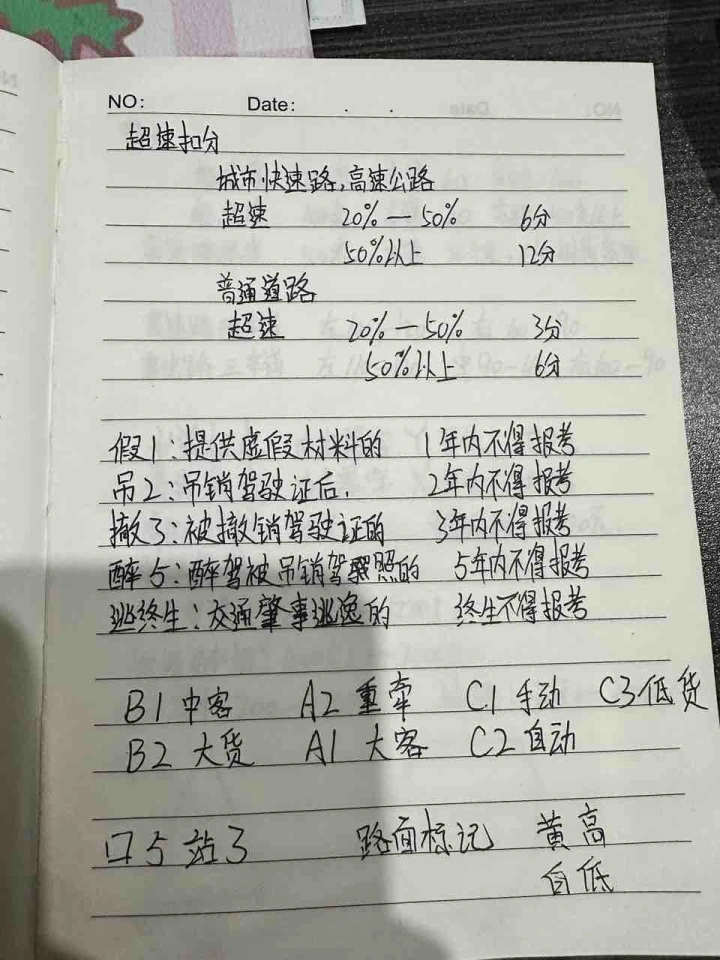 NO: Date: . .
超速扣分
城市快速路,高速公路
超速 20%—50% 6分
50%以上 12分
普通道路
超速 20%—50% 3分
50%以上 6分
假1:提供虚假材料的 1年内不得报考
吊2:吊销驾驶证后. 2年内不得报考
撤3:被撤销驾驶证的 3年内不得报考
醉5:醉驾被吊销驾照的 5年内不得报考
逃终生:交通肇事逃逸的 终生不得报考
B1中客 A2重牵 C1手动 C3低货
B2大货 A1大客 C2自动
口5站3 路面标记 黄高
白低